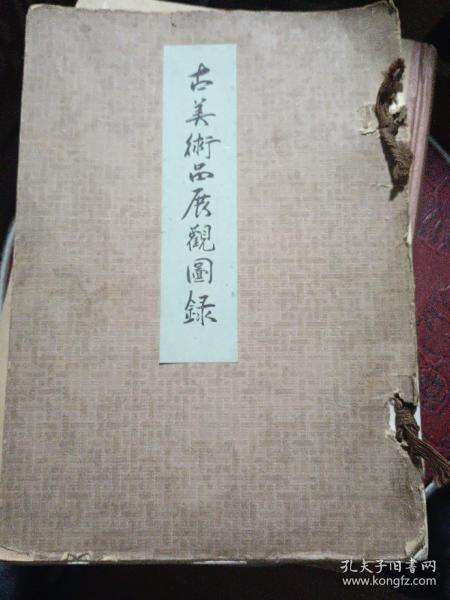 古美術品展觀圖録
孔夫子旧书网
www.kongfz.com